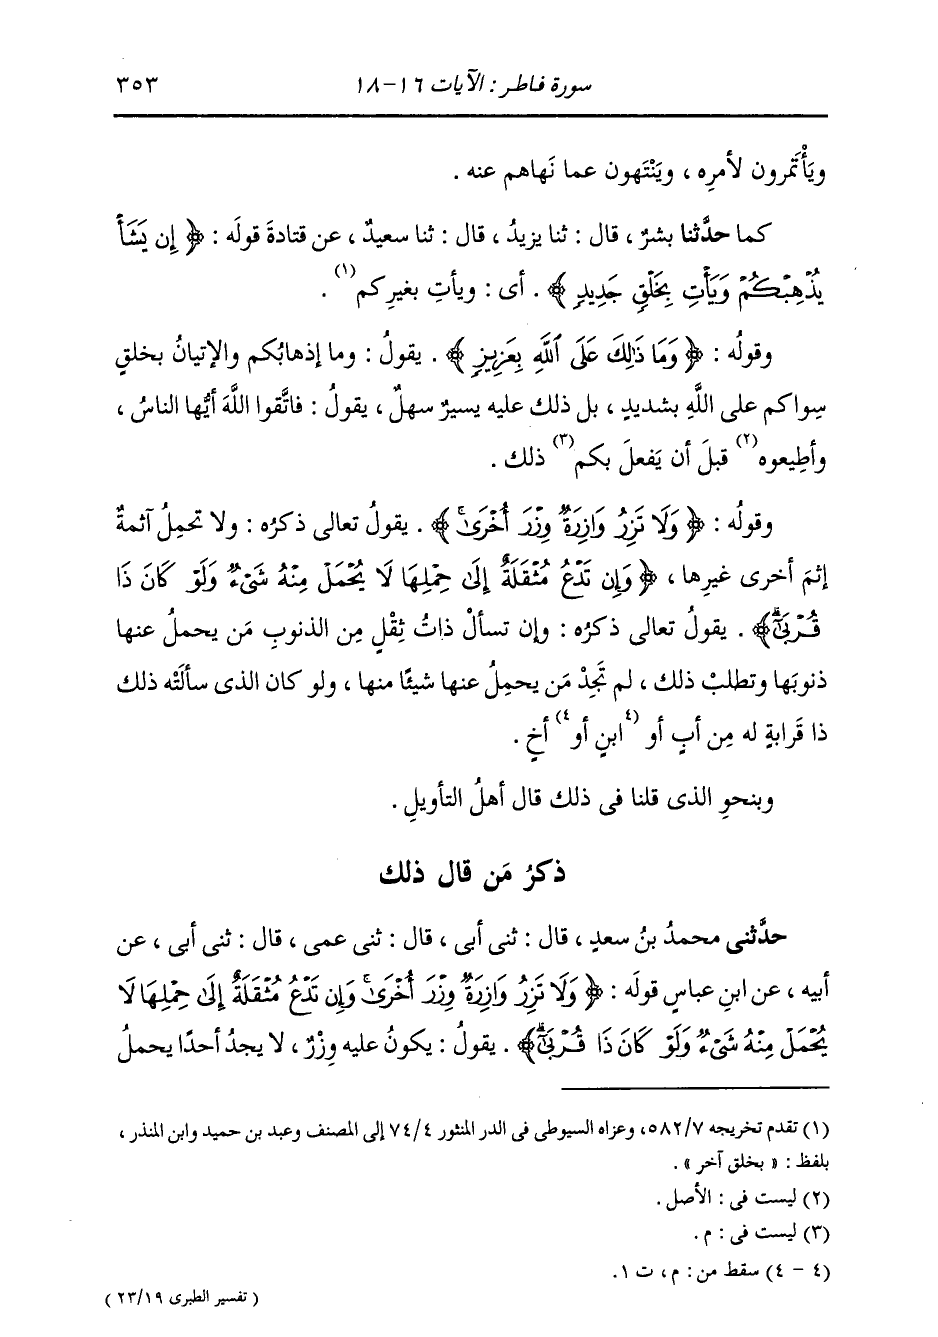 سورة فاطر : الآيات ١٦-١٨ ٣٥٣
ويَأْتَمرون لأمرِه ، ويَنْتَهون عما نَهاهم عنه .
كما حدَّثنا بشرٌ ، قال : ثنا يزيدُ ، قال : ثنا سعيدٌ ، عن قتادةَ قولَه : ﴿ إِن يَشَأْ
يُذْهِبْكُمْ وَيَأْتِ بِخَلْقٍ جَدِيدٍ ﴾ . أى : ويأتِ بغيرِكم (١) .
وقولُه : ﴿ وَمَا ذَٰلِكَ عَلَى ٱللَّهِ بِعَزِيزٍ ﴾ . يقولُ : وما إذهابُكم والإتيانُ بخلقٍ
سِواكم على اللَّهِ بشديدٍ ، بل ذلك عليه يسيرٌ سهلٌ ، يقولُ : فاتَّقوا اللَّهَ أيُّها الناسُ ،
وأطِيعوه (٢) قبلَ أن يَفعلَ بكم (٣) ذلك .
وقولُه : ﴿ وَلَا تَزِرُ وَازِرَةٌ وِزْرَ أُخْرَىٰ ﴾ . يقولُ تعالى ذكرُه : ولا تحمِلُ آثمةٌ
إثمَ أخرى غيرِها ، ﴿ وَإِن تَدْعُ مُثْقَلَةٌ إِلَىٰ حِمْلِهَا لَا يُحْمَلْ مِنْهُ شَىْءٌ وَلَوْ كَانَ ذَا
قُرْبَىٰٓ ﴾ . يقولُ تعالى ذكرُه : وإن تسألْ ذاتُ ثِقْلٍ مِن الذنوبِ مَن يحملُ عنها
ذنوبَها وتطلبْ ذلك ، لم تَجِدْ مَن يحمِلُ عنها شيئًا منها ، ولو كان الذى سألَتْه ذلك
ذا قَرابةٍ له مِن أبٍ أو (٤) ابنٍ أو (٤) أخٍ .
وبنحوِ الذى قلنا فى ذلك قال أهلُ التأويلِ .
ذكرُ مَن قال ذلك
حدَّثنى محمدُ بنُ سعدٍ ، قال : ثنى أبى ، قال : ثنى عمى ، قال : ثنى أبى ، عن
أبيه ، عن ابنِ عباسٍ قولَه : ﴿ وَلَا تَزِرُ وَازِرَةٌ وِزْرَ أُخْرَىٰ وَإِن تَدْعُ مُثْقَلَةٌ إِلَىٰ حِمْلِهَا لَا
يُحْمَلْ مِنْهُ شَىْءٌ وَلَوْ كَانَ ذَا قُرْبَىٰٓ ﴾ . يقولُ : يكونُ عليه وِزْرٌ ، لا يجدُ أحدًا يحملُ
(١) تقدم تخريجه ٥٨٢/٧، وعزاه السيوطى فى الدر المنثور ٧٤/٤ إلى المصنف وعبد بن حميد وابن المنذر ،
بلفظ : « بخلق آخر » .
(٢) ليست فى : الأصل .
(٣) ليست فى : م .
(٤ - ٤) سقط من : م ، ت ١.
( تفسير الطبرى ٢٣/١٩ )